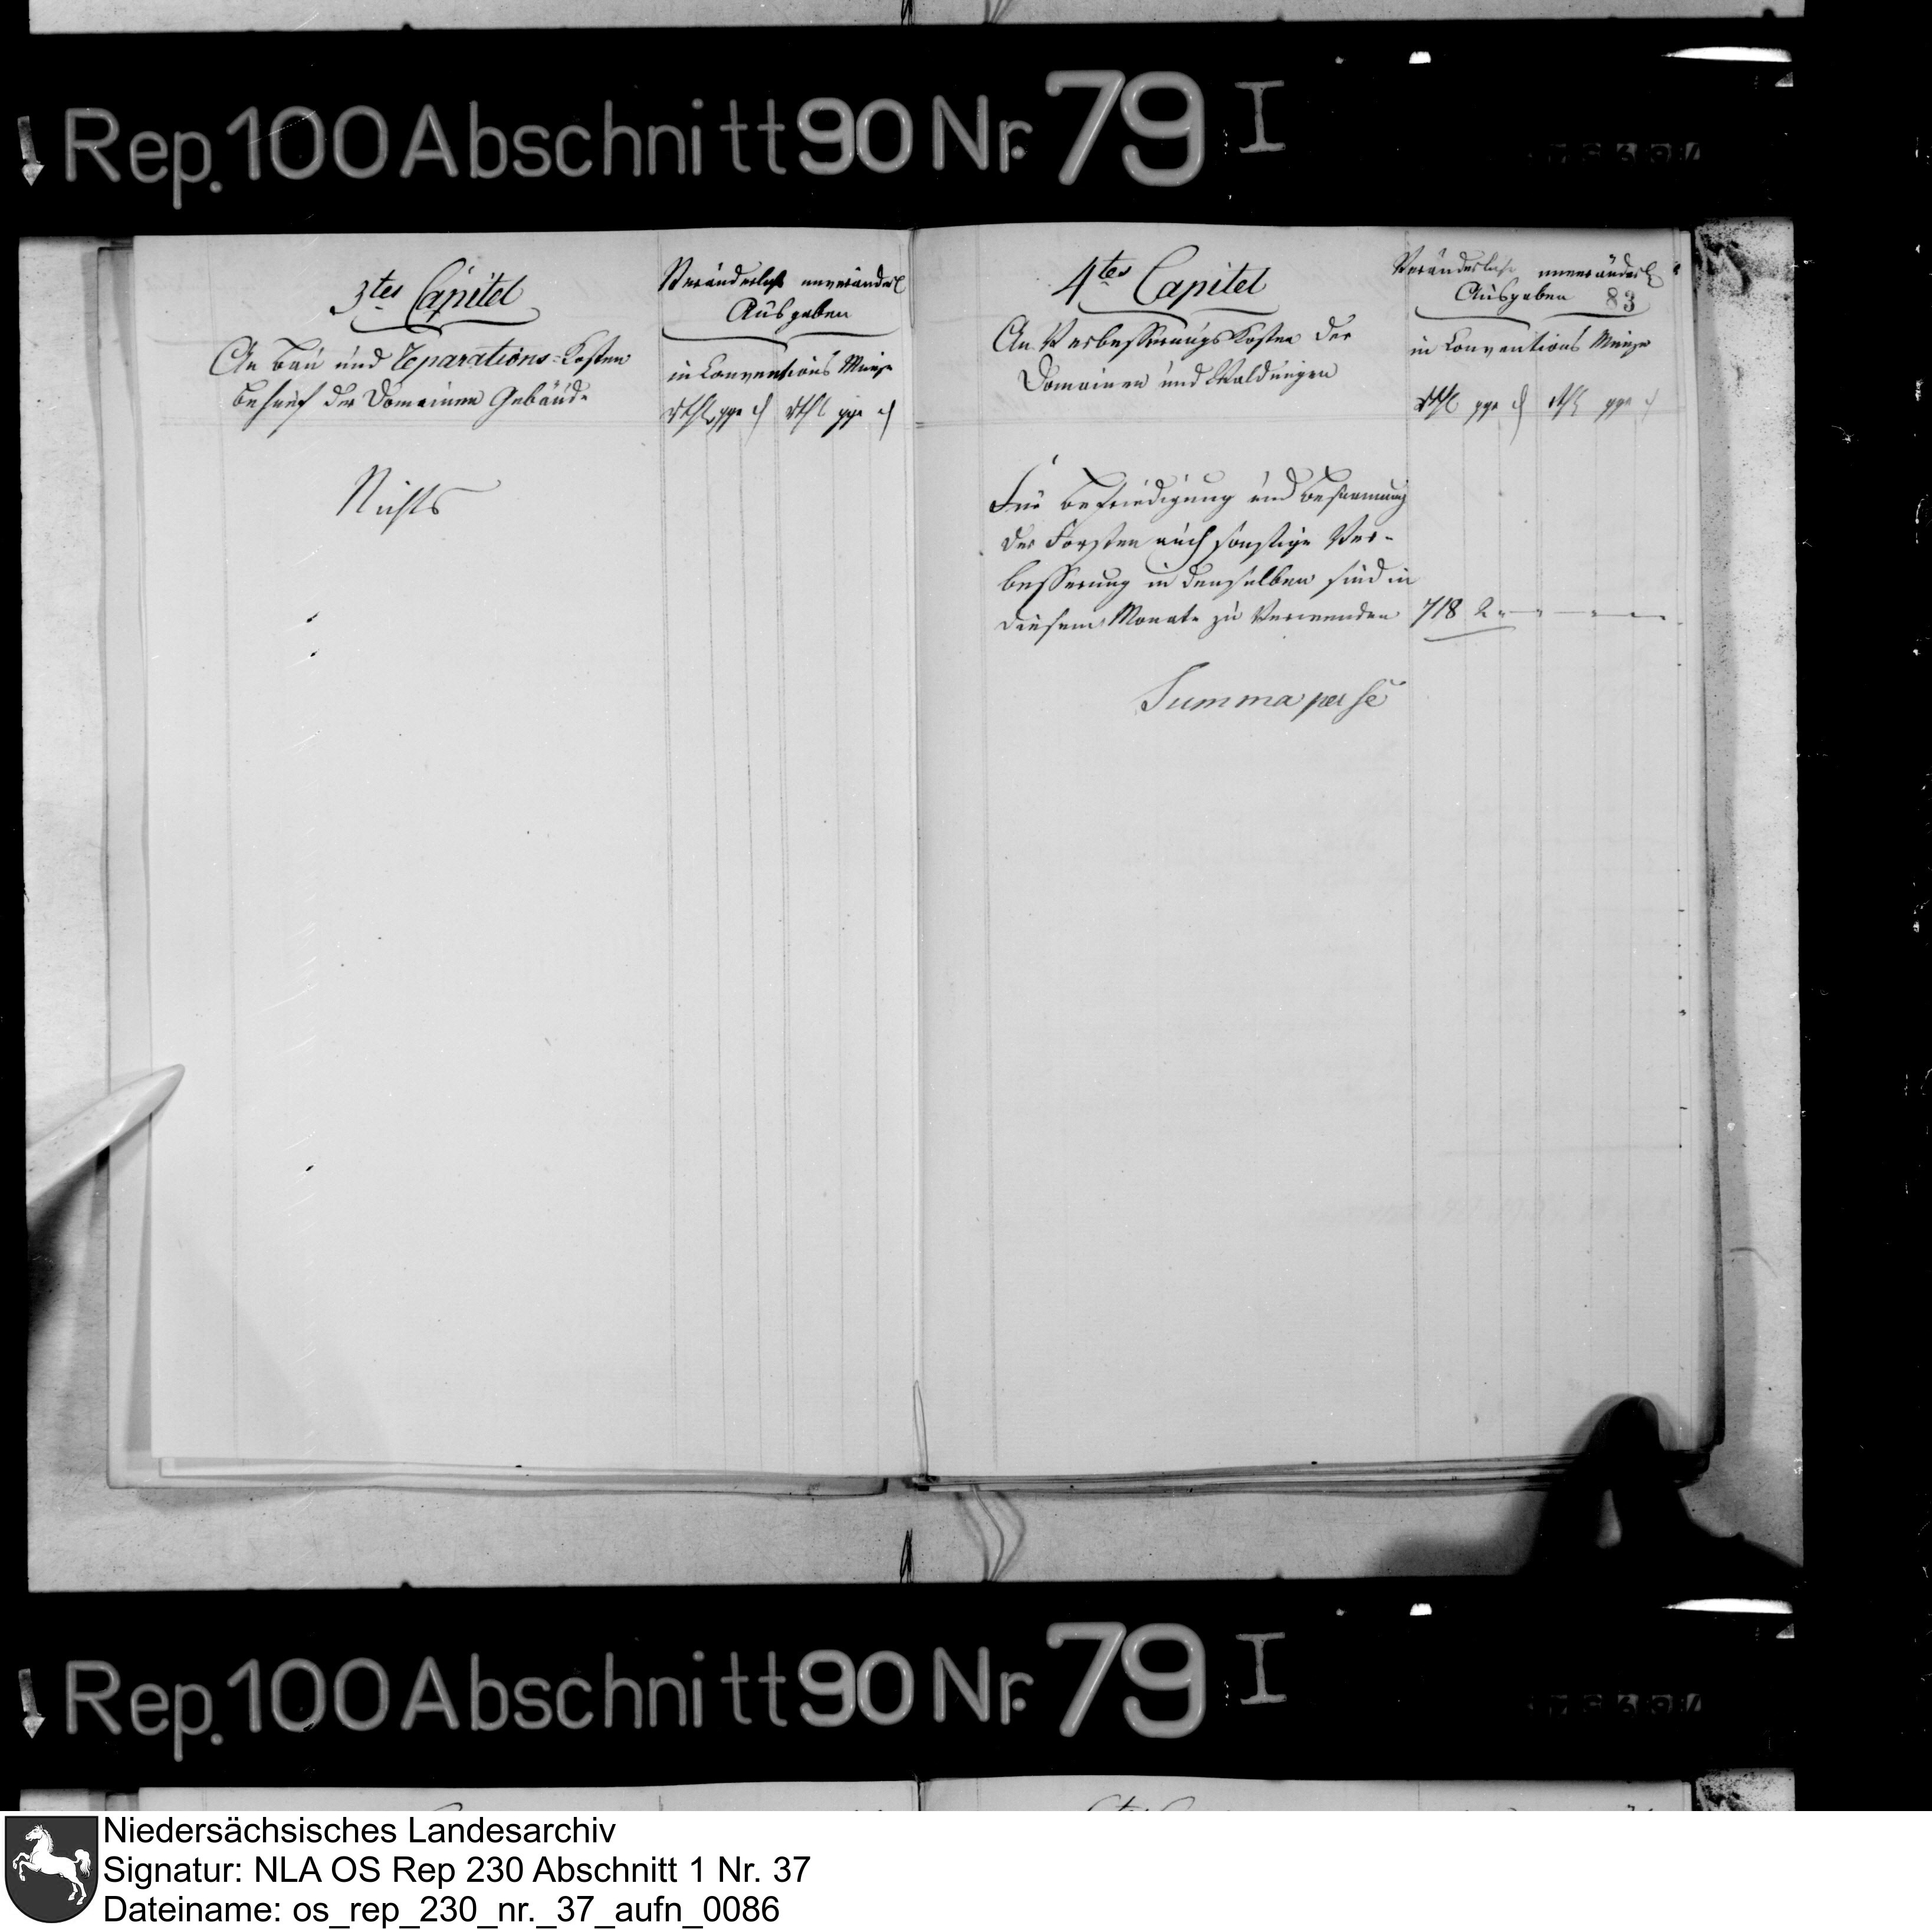 Rep. 100 Abschnitt 90 Nr. 79 I
3tes Capitel
An Bau und Reparations-Kosten
behuef der Domainen Gebäude
Veränderliche unveränderl
Ausgaben
in Conventions Münze
Rthl ggr ₰ Rthl ggr ₰
Nichts
4tes Capitel
An Verbesserungs Kosten der
Domainen und Waldungen
Veränderliche unveränderl
Ausgaben 83
in Conventions Münze
Rthl ggr ₰ Rthl ggr ₰
Für Befriedigung und Besaamung
der Forsten auch sonstige Ver-
besserung in denselben sind in
diesem Monate zu Verwenden 718 2
Summa per se
Rep. 100 Abschnitt 90 Nr. 79 I
Niedersächsisches Landesarchiv
Signatur: NLA OS Rep 230 Abschnitt 1 Nr. 37
Dateiname: os_rep_230_nr._37_aufn_0086